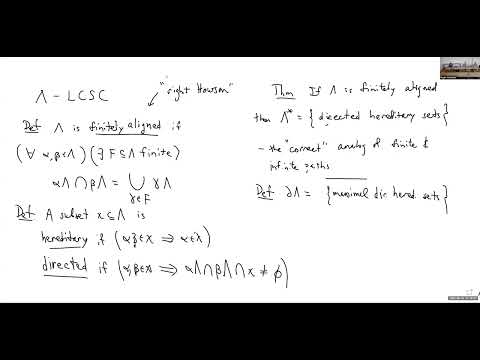 Λ - LCSC
"right Howson"
Def Λ is finitely aligned if
(∀ α,β∈Λ)(∃ F⊆Λ finite)
αΛ ∩ βΛ = ⋃ γΛ
γ∈F
Def A subset x⊆Λ is
hereditary if (αβ∈x ⇒ α∈x)
directed if (α,β∈x ⇒ αΛ∩βΛ∩x ≠ ∅)
Thm If Λ is finitely aligned
then Λ* = {directed hereditary sets}
- the "correct" analog of finite &
infinite paths
Def ∂Λ = {maximal dir hered sets}